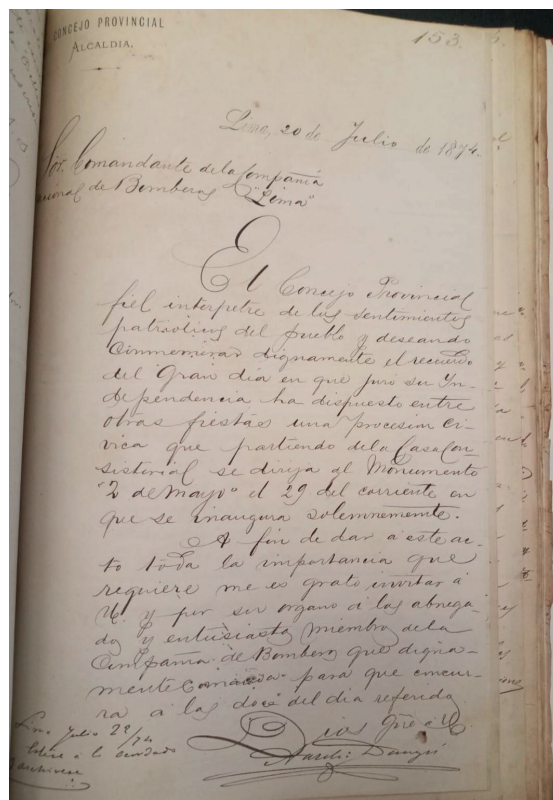 CONCEJO PROVINCIAL
ALCALDIA.
153.
Lima, 20 de Julio de 1874.
Sor. Comandante de la Compañia
Nacional de Bomberos "Lima"
El Concejo Provincial
fiel interpetre de los sentimientos
patrióticos del pueblo y deseando
conmemorar dignamente el recuerdo
del Gran dia en que juró su In-
dependencia ha dispuesto entre
otras fiestas una procesion ci-
vica que partiendo de la Casa Con-
sistorial se dirija al Monumento
"2 de Mayo" el 29 del corriente en
que se inaugura solemnemente.
A fin de dar a este ac-
to toda la importancia que
requiere me es grato invitar á
U. y por su organo á los abnega-
dos y entusiastas miembros de la
Compañia de Bomberos que digna-
mente comanda para que concur-
ra a las doce del dia referido
Dios gue. á U.
Lima Julio 22/74
archivese